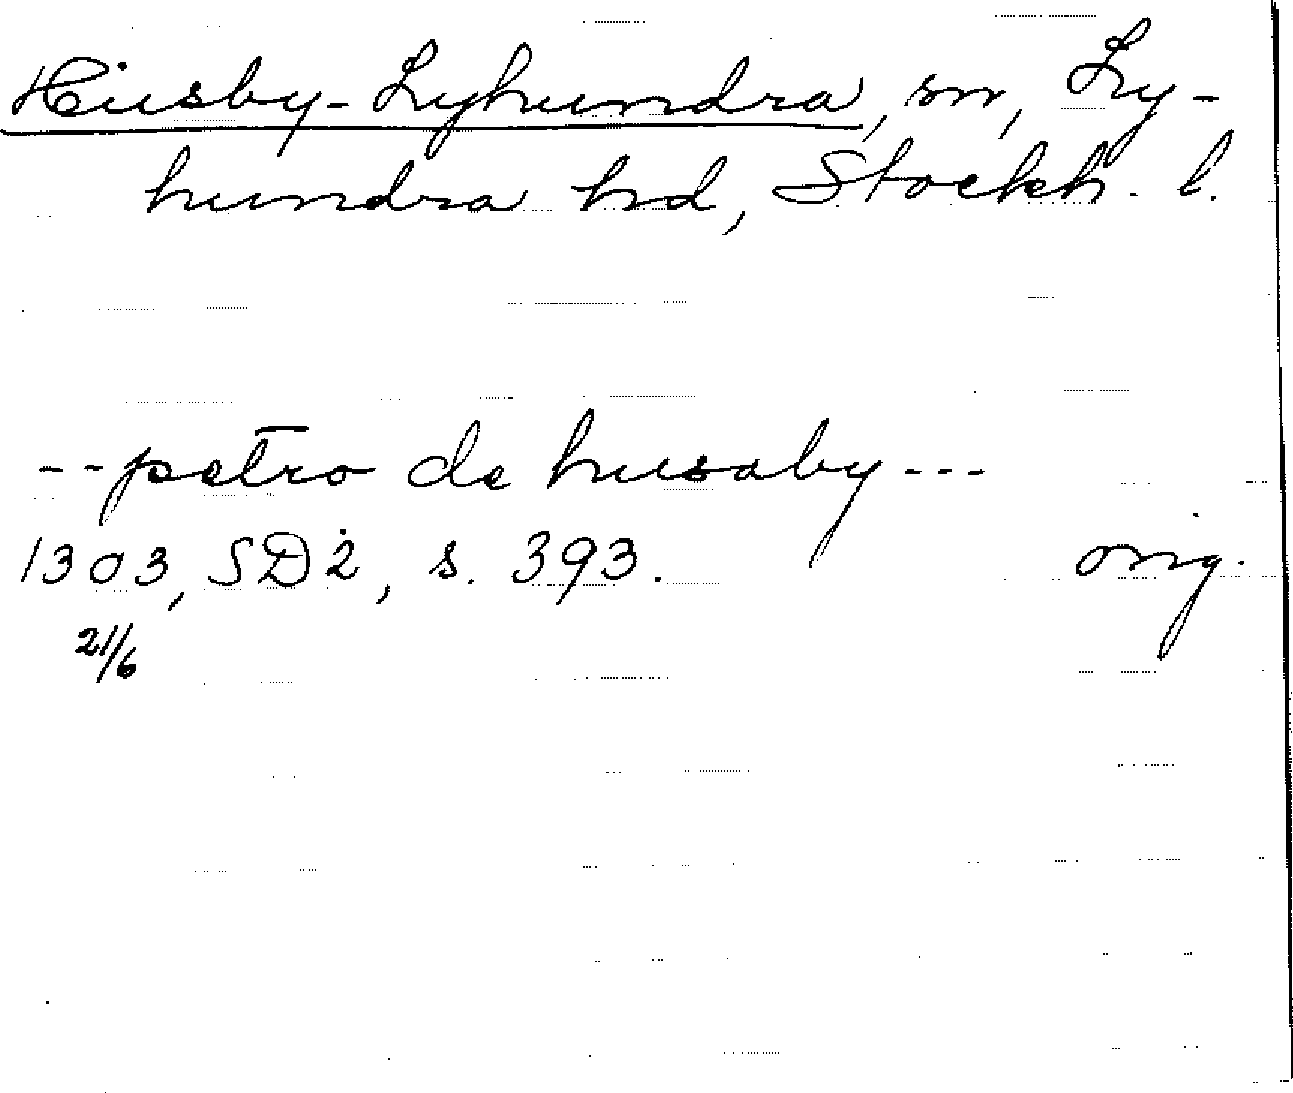 Husby-Lyhundra, sn, Ly-
hundra hd, Stockh. l.
--petro de husaby---
1303, SD2, s. 393. orig.
21/6